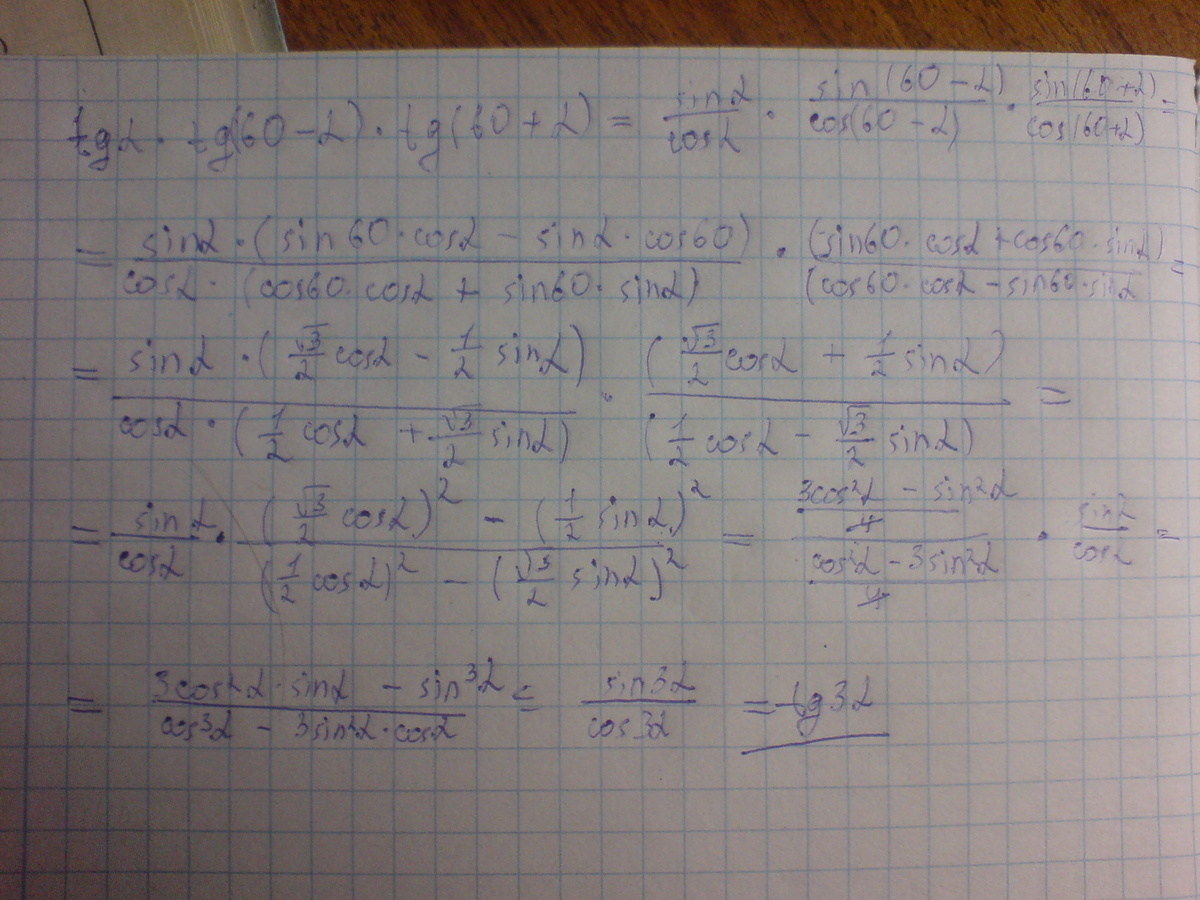 tgα · tg(60 − α) · tg(60 + α) = sinα/cosα · sin(60 − α)/cos(60 − α) · sin(60 + α)/cos(60 + α) =
= sinα · (sin60 · cosα − sinα · cos60)/cosα · (cos60 · cosα + sin60 · sinα) · (sin60 · cosα + cos60 · sinα)/(cos60 · cosα − sin60 · sinα =
= sinα · (√3/2 cosα − 1/2 sinα)/cosα · (1/2 cosα + √3/2 sinα) · (√3/2 cosα + 1/2 sinα)/(1/2 cosα − √3/2 sinα) =
= sinα/cosα · (√3/2 cosα)² − (1/2 sinα)²/(1/2 cosα)² − (√3/2 sinα)² = 3cos²α − sin²α/4 / cos²α − 3sin²α/4 · sinα/cosα =
= 3cos²α · sinα − sin³α/cos³α − 3sin²α · cosα = sin3α/cos3α = tg3α